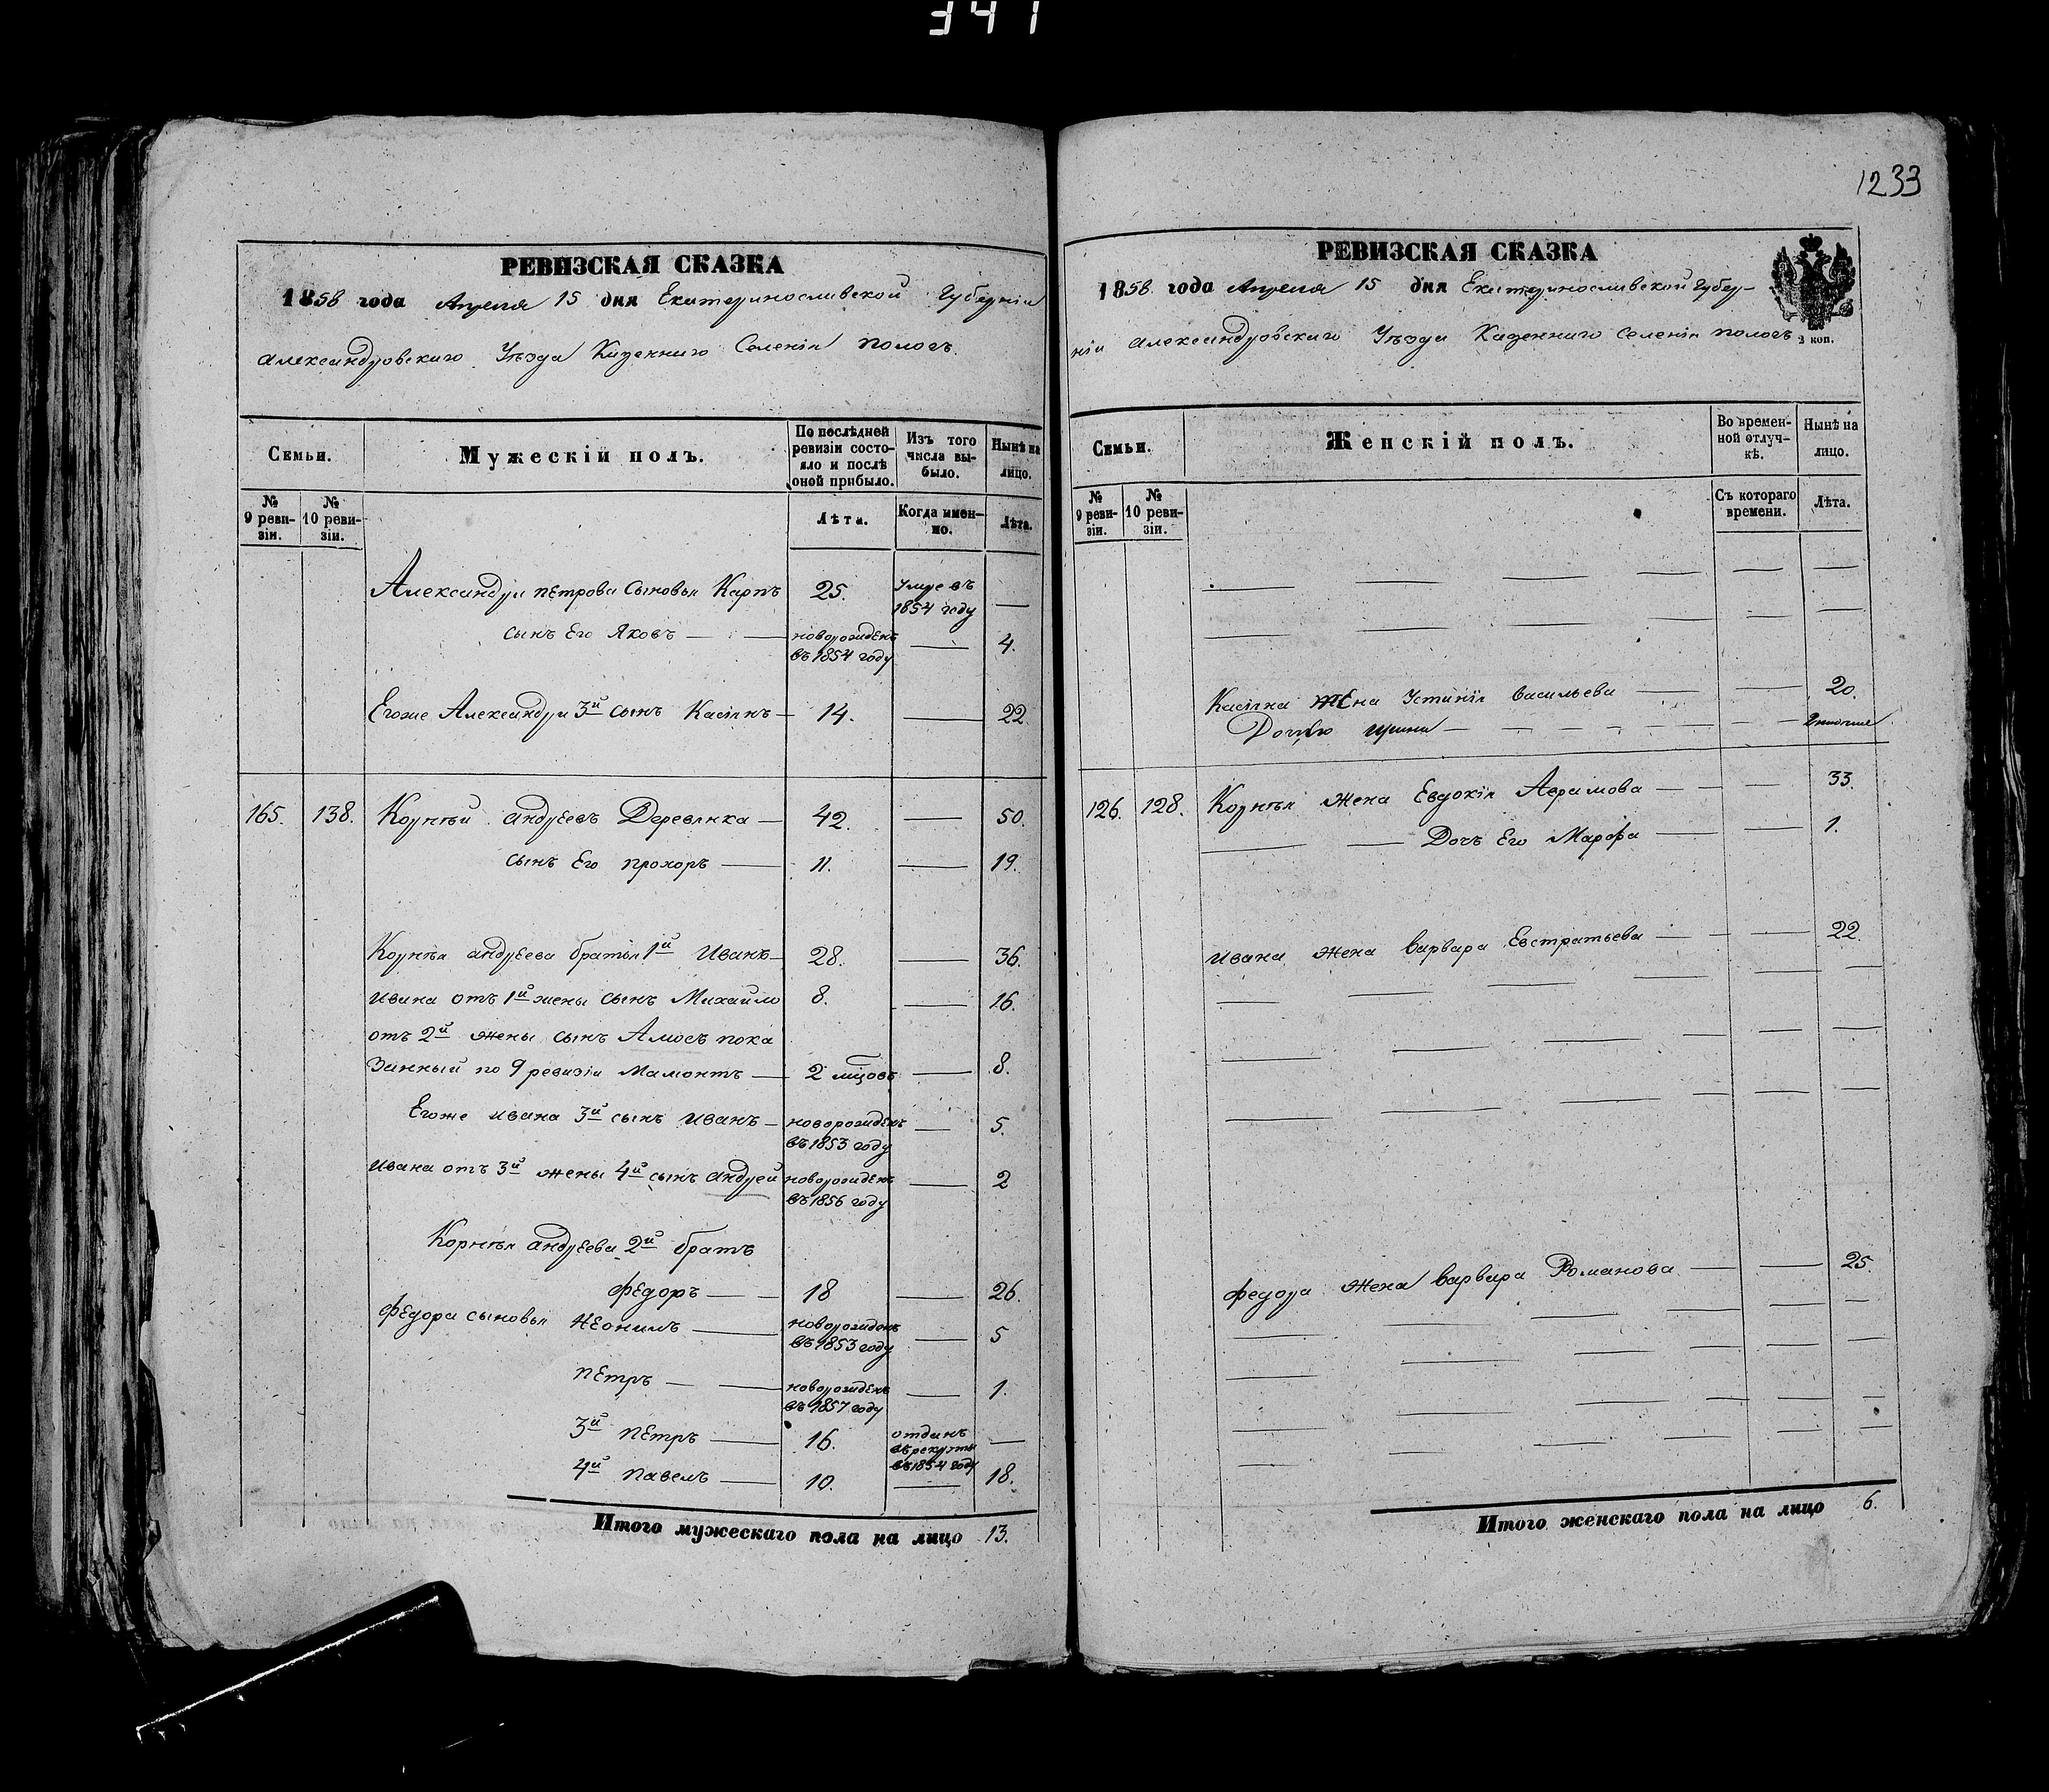 341
1233
РЕВИЗСКАЯ СКАЗКА
1858 года Апреля 15 дня Екатеринославской Губерніи
Александровскаго Уѣзда Казеннаго Селенія Пологъ
Семьи.
Мужескій полъ.
По послѣдней ревизіи состояло и послѣ оной прибыло.
Изъ того числа выбыло.
Нынѣ на лицо.
№ 9 ревизіи.
№ 10 ревизіи.
Лѣта.
Когда именно.
Лѣта.
Александра Петрова сыновья Карпъ 25. умре въ 1854 году —
сынъ Его Яковъ — новорожденъ въ 1854 году — 4.
Егоже Александра 3й сынъ Касіянъ — 14. — 22.
165. 138. Корнѣй Андреевъ Деревянка — 42. — 50.
сынъ Его Прохоръ — 11. — 19.
Корнѣя Андреева братья 1й Иванъ — 28. — 36.
Ивана отъ 1й жены сынъ Михайло 8. — 16.
отъ 2й жены сынъ Амосъ пока
занный по 9 ревизіи Мамонтъ — 2 мцовъ — 8.
Егоже Ивана 3й сынъ Иванъ — новорожденъ въ 1853 году — 5.
Ивана отъ 3й жены 4й сынъ Андрей новорожденъ въ 1856 году — 2
Корнѣя Андреева 2й братъ
Федоръ — 18 — 26.
Федора сыновья Неонилъ — новорожденъ въ 1853 году — 5
Петръ — новорожденъ въ 1857 году — 1.
3й Петръ — 16. отданъ въ рекруты въ 1854 году —
4й Павелъ — 10. — 18.
Итого мужескаго пола на лицо 13.
РЕВИЗСКАЯ СКАЗКА
1858 года Апреля 15 дня Екатеринославской Губер-
ніи Александровскаго Уѣзда Казеннаго Селенія Пологъ
2 коп.
Семьи.
Женскій полъ.
Во временной отлучкѣ.
Нынѣ на лицо.
№ 9 ревизіи.
№ 10 ревизіи.
Съ котораго времени.
Лѣта.
Касіяна жена Устинія Васильева — 20.
Дочь
126. 128. Корнѣя жена Евдокія Аврамова — 33.
Дочъ Его Марфа — 1.
Ивана жена Варвара Евстратьева — 22.
Федора жена Варвара Романова — 25.
Итого женскаго пола на лицо 6.